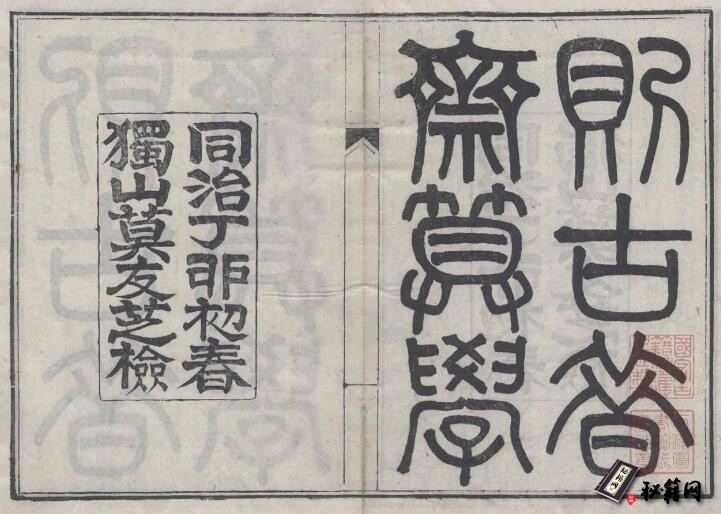 則古昔
齋算學
同治丁卯初春
獨山莫友芝檢
秘籍网